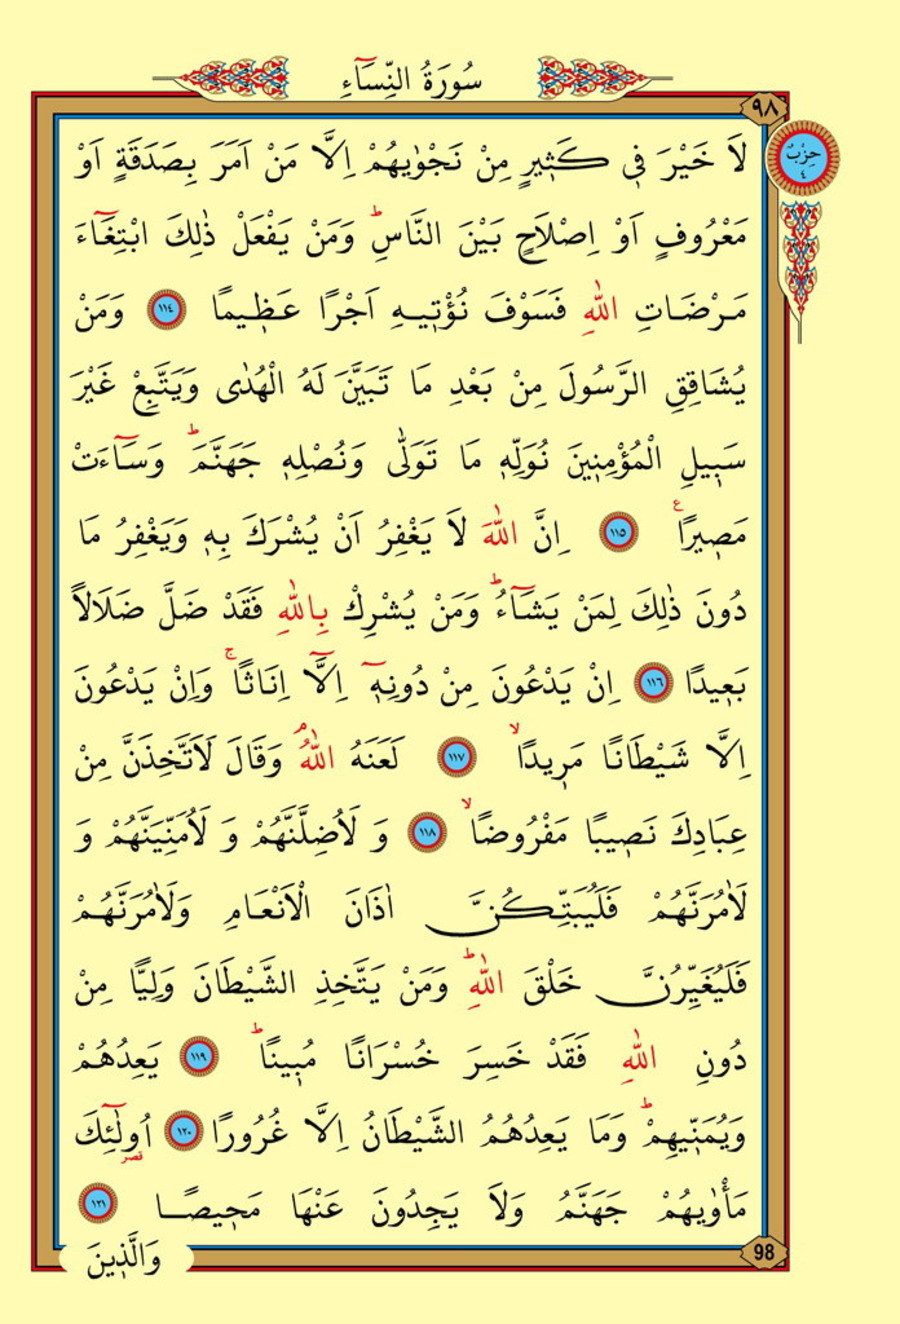 سُورَةُ النِّسَٓاءِ
٩٨
حِزْبٌ
٤
لَا خَيْرَ فٖي كَثٖيرٍ مِنْ نَجْوٰيهُمْ اِلَّا مَنْ اَمَرَ بِصَدَقَةٍ اَوْ
مَعْرُوفٍ اَوْ اِصْلَاحٍ بَيْنَ النَّاسِؕ وَمَنْ يَفْعَلْ ذٰلِكَ ابْتِغَٓاءَ
مَرْضَاتِ اللّٰهِ فَسَوْفَ نُؤْتٖيهِ اَجْرًا عَظٖيمًا ١١٤ وَمَنْ
يُشَاقِقِ الرَّسُولَ مِنْ بَعْدِ مَا تَبَيَّنَ لَهُ الْهُدٰى وَيَتَّبِعْ غَيْرَ
سَبٖيلِ الْمُؤْمِنٖينَ نُوَلِّهٖ مَا تَوَلّٰى وَنُصْلِهٖ جَهَنَّمَؕ وَسَٓاءَتْ
مَصٖيرًاࣖ ١١٥ اِنَّ اللّٰهَ لَا يَغْفِرُ اَنْ يُشْرَكَ بِهٖ وَيَغْفِرُ مَا
دُونَ ذٰلِكَ لِمَنْ يَشَٓاءُؕ وَمَنْ يُشْرِكْ بِاللّٰهِ فَقَدْ ضَلَّ ضَلَالًا
بَعٖيدًا ١١٦ اِنْ يَدْعُونَ مِنْ دُونِهٖٓ اِلَّٓا اِنَاثًاۚ وَاِنْ يَدْعُونَ
اِلَّا شَيْطَانًا مَرٖيدًاۙ ١١٧ لَعَنَهُ اللّٰهُۘ وَقَالَ لَاَتَّخِذَنَّ مِنْ
عِبَادِكَ نَصٖيبًا مَفْرُوضًاۙ ١١٨ وَ لَاُضِلَّنَّهُمْ وَ لَاُمَنِّيَنَّهُمْ وَ
لَاٰمُرَنَّهُمْ فَلَيُبَتِّكُنَّ اٰذَانَ الْاَنْعَامِ وَلَاٰمُرَنَّهُمْ
فَلَيُغَيِّرُنَّ خَلْقَ اللّٰهِؕ وَمَنْ يَتَّخِذِ الشَّيْطَانَ وَلِيًّا مِنْ
دُونِ اللّٰهِ فَقَدْ خَسِرَ خُسْرَانًا مُبٖينًاؕ ١١٩ يَعِدُهُمْ
وَيُمَنّٖيهِمْؕ وَمَا يَعِدُهُمُ الشَّيْطَانُ اِلَّا غُرُورًا ١٢٠ اُو۬لٰٓئِكَ
قصر
مَأْوٰيهُمْ جَهَنَّمُ وَلَا يَجِدُونَ عَنْهَا مَحٖيصًا ١٢١
وَالَّذٖينَ
98